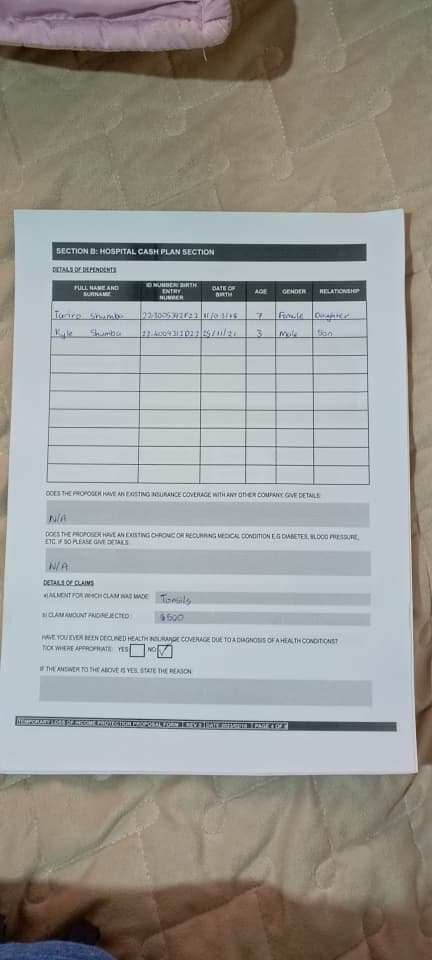 SECTION B: HOSPITAL CASH PLAN SECTION
DETAILS OF DEPENDENTS
FULL NAME AND SURNAME ID NUMBER/ BIRTH ENTRY NUMBER DATE OF BIRTH AGE GENDER RELATIONSHIP
Tariro Shumba 22-3005392F22 11/03/18 7 Female Daughter
Kyle Shumba 22-4004312D22 25/11/21 3 Male Son
DOES THE PROPOSER HAVE AN EXISTING INSURANCE COVERAGE WITH ANY OTHER COMPANY, GIVE DETAILS:
N/A
DOES THE PROPOSER HAVE AN EXISTING CHRONIC OR RECURRING MEDICAL CONDITION E.G DIABETES, BLOOD PRESSURE,
ETC. IF SO PLEASE GIVE DETAILS:
N/A
DETAILS OF CLAIMS
a) AILMENT FOR WHICH CLAIM WAS MADE: Tonsils
b) CLAIM AMOUNT PAID/REJECTED : $500
HAVE YOU EVER BEEN DECLINED HEALTH INSURANCE COVERAGE DUE TO A DIAGNOSIS OF A HEALTH CONDITIONS?
TICK WHERE APPROPRIATE: YES NO
IF THE ANSWER TO THE ABOVE IS YES, STATE THE REASON:
TEMPORARY LOSS OF INCOME PROTECTION PROPOSAL FORM | REV 2 | DATE | PAGE 4 OF